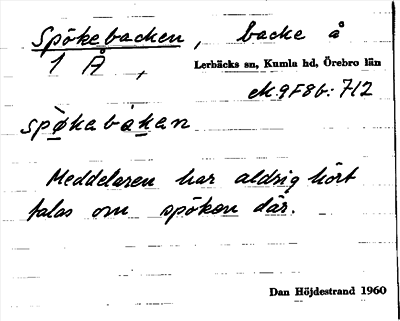 Spökebacken, backe å
1 Å, Lerbäcks sn, Kumla hd, Örebro län
ek. 9F8b: 712
spø̀kabákan
Meddelaren har aldrig hört
talas om spöken där.
Dan Höjdestrand 1960